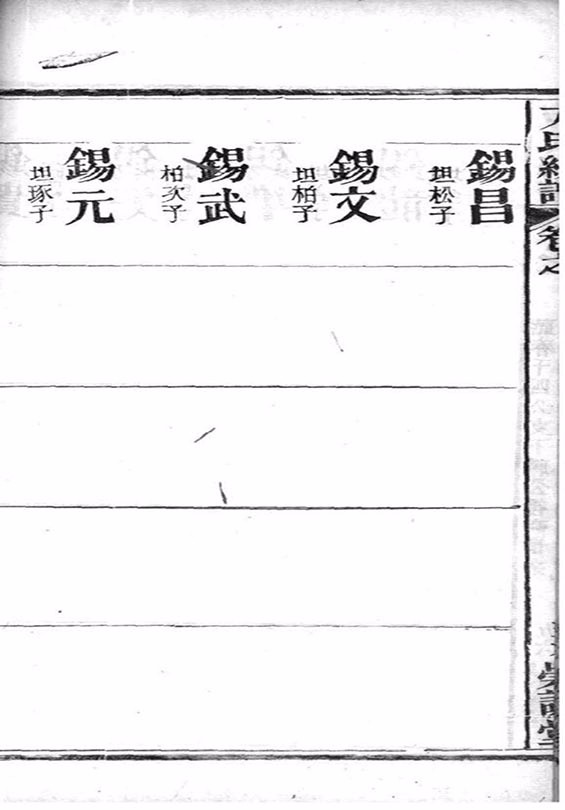 錫昌
坦松子
錫文
坦柏子
錫武
柏次子
錫元
坦琢子